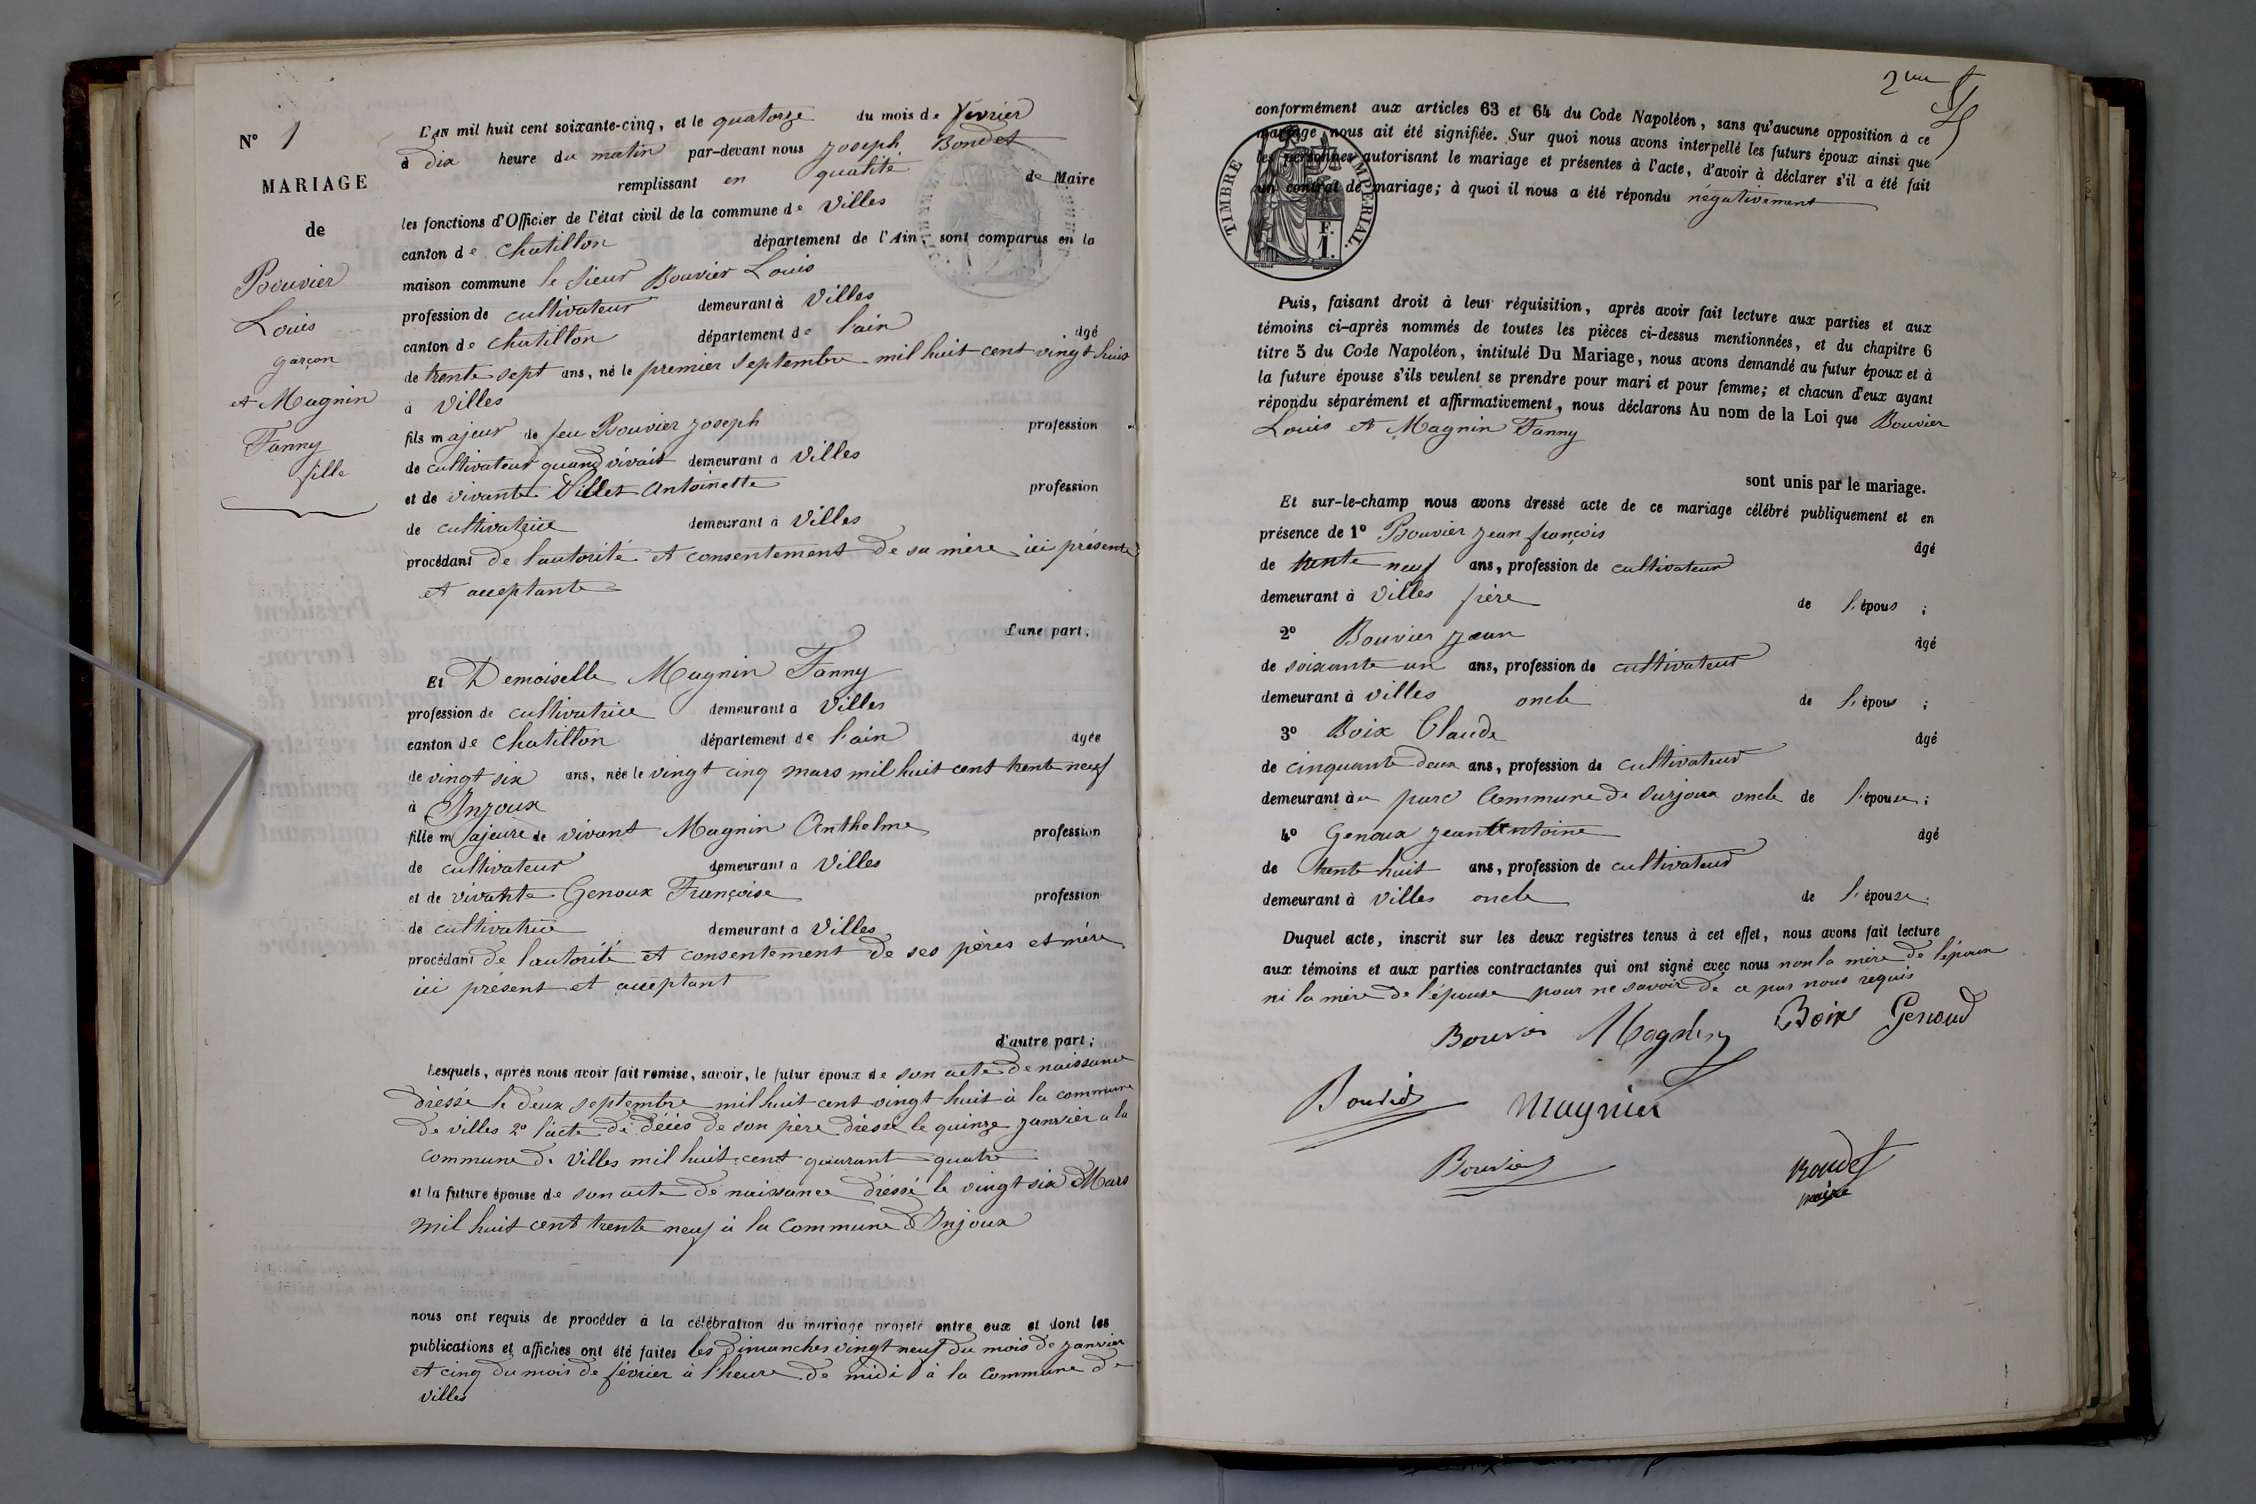 N° 1
MARIAGE
de
Bouvier
Louis
garçon
et Magnin
Fanny
fille
L'AN mil huit cent soixante-cinq, et le quatorze du mois de février
à dix heure du matin par-devant nous Joseph Bondet
remplissant en qualité de Maire
les fonctions d'Officier de l'état civil de la commune de Villes
canton de Chatillon département de l'Ain, sont comparus en la
maison commune le sieur Bouvier Louis
profession de cultivateur demeurant à Villes
canton de Chatillon département de l'ain âgé
de trente sept ans, né le premier septembre mil huit cent vingt huit
à Villes
fils majeur de feu Bouvier Joseph profession
de cultivateur quand vivait demeurant à Villes
et de vivante Villet Antoinette profession
de cultivatrice demeurant à Villes
procédant de l'autorité et consentement de sa mère ici présente
et acceptante
d'une part,
Et Demoiselle Magnin Fanny
profession de cultivatrice demeurant à Villes
canton de Chatillon département de l'ain âgée
de vingt six ans, née le vingt cinq mars mil huit cent trente neuf
à Injoux
fille majeure de vivant Magnin Anthelme profession
de cultivateur demeurant à Villes
et de vivante Genoux Françoise profession
de cultivatrice demeurant à Villes
procédant de l'autorité et consentement de ses pères et mère
ici présent et acceptant
d'autre part;
Lesquels, après nous avoir fait remise, savoir, le futur époux de son acte de naissance
dréssé le deux septembre mil huit cent vingt huit à la commune
de villes 2° l'acte de décès de son père dréssé le quinze janvier a la
commune de Villes mil huit cent quarant quatre
et la future épouse de son acte de naissance dréssé le vingt six Mars
mil huit cent trente neuf à la Commune d'Injoux
nous ont requis de procéder à la célébration du mariage projeté entre eux et dont les
publications et affiches ont été faites les dimanches vingt neuf du mois de janvier
et cinq du mois de février à l'heure de midi à la Commune de
Villes
2me
conformément aux articles 63 et 64 du Code Napoléon, sans qu'aucune opposition à ce
mariage nous ait été signifiée. Sur quoi nous avons interpellé les futurs époux ainsi que
les personnes autorisant le mariage et présentes à l'acte, d'avoir à déclarer s'il a été fait
un contrat de mariage; à quoi il nous a été répondu négativement
TIMBRE IMPÉRIAL.
F.
1.
Puis, faisant droit à leur réquisition, après avoir fait lecture aux parties et aux
témoins ci-après nommés de toutes les pièces ci-dessus mentionnées, et du chapitre 6
titre 5 du Code Napoléon, intitulé Du Mariage, nous avons demandé au futur époux et à
la future épouse s'ils veulent se prendre pour mari et pour femme; et chacun d'eux ayant
répondu séparément et affirmativement, nous déclarons Au nom de la Loi que Bouvier
Louis et Magnin Fanny
sont unis par le mariage.
Et sur-le-champ nous avons dressé acte de ce mariage célébré publiquement et en
présence de 1° Bouvier Jean françois âgé
de trente neuf ans, profession de cultivateur
demeurant à Villes frère de l'époux;
2° Bouvier Jean âgé
de soixante un ans, profession de cultivateur
demeurant à villes oncle de l'époux;
3° Boix Claude âgé
de cinquante deux ans, profession de cultivateur
demeurant à parc Commune de Surjoux oncle de l'épouse;
4° Genoux Jean Antoine âgé
de trente huit ans, profession de cultivateur
demeurant à Villes oncle de l'épouse.
Duquel acte, inscrit sur les deux registres tenus à cet effet, nous avons fait lecture
aux témoins et aux parties contractantes qui ont signé avec nous non la mère de l'époux
ni la mère de l'épouse pour ne savoir de ce par nous requis
Bouvie Magnin Boix Genoud
Bouvier Magnin
Bouvier Bondet
maire